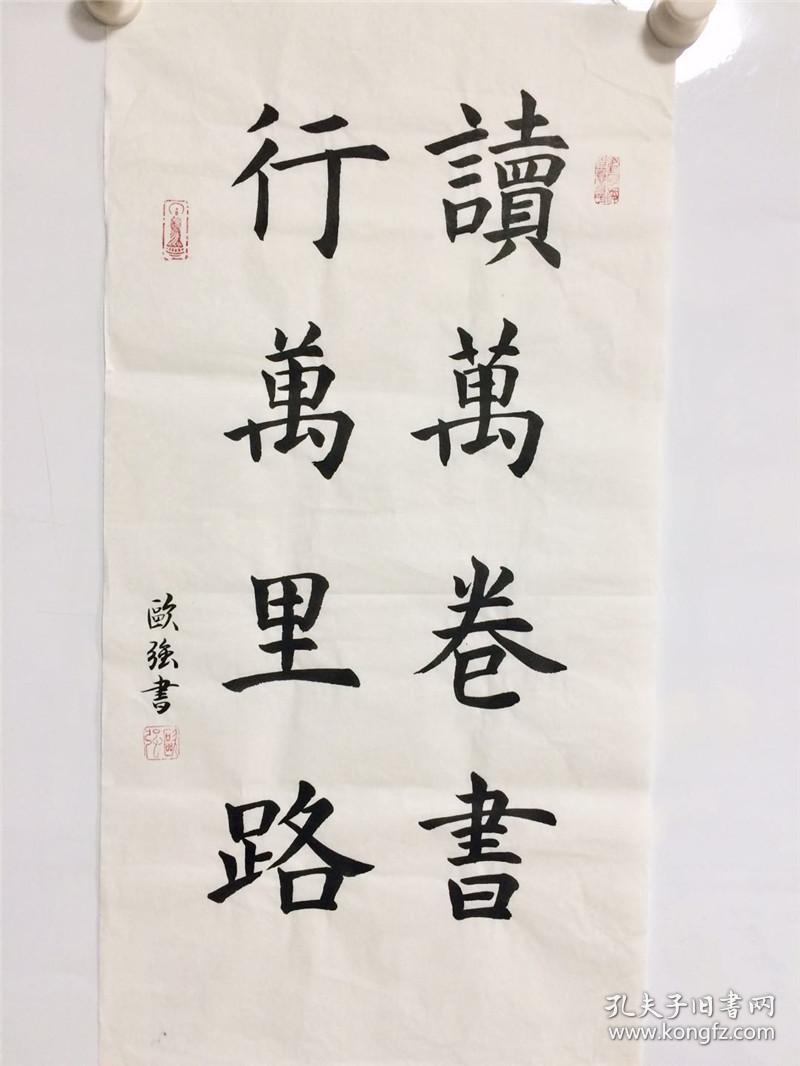 讀萬卷書
行萬里路
歐強書
孔夫子旧書网
www.kongfz.com